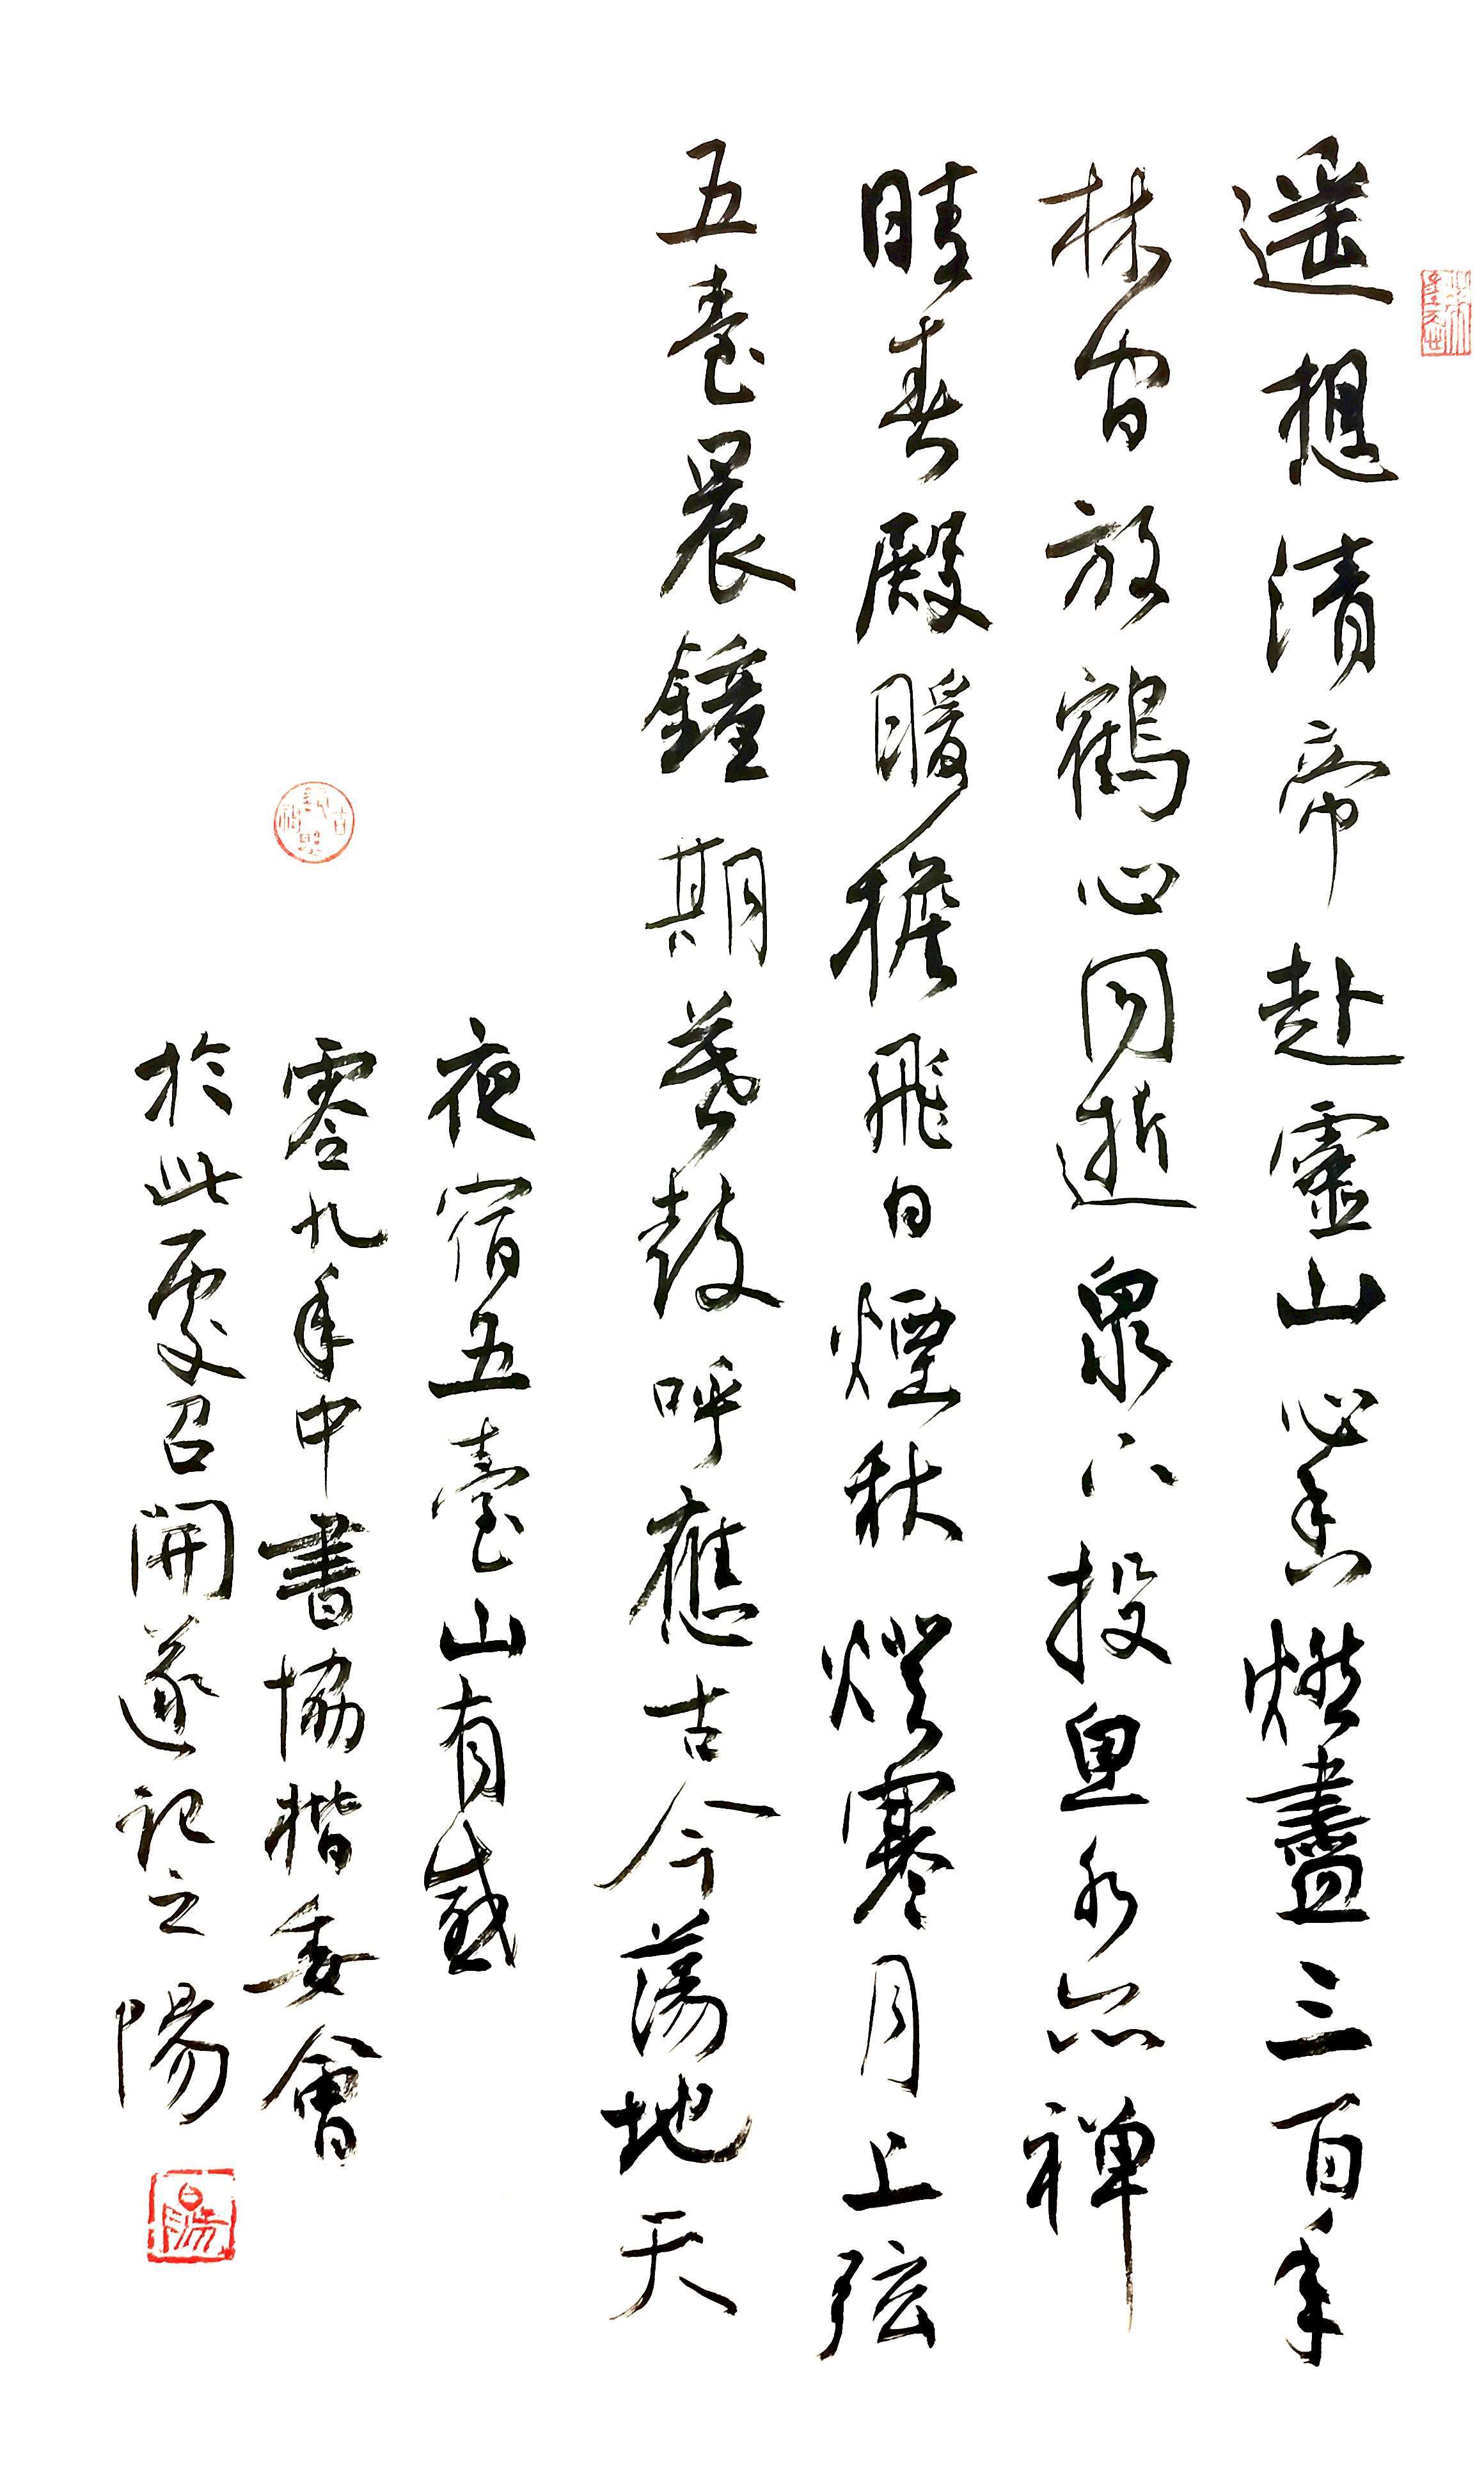 遥想清帝赴靈山心香燃盡三百年
林間放鶴心同逝泉下投魚水亦禪
晴春殿暖檐飛白煙秋燈寒月上弦
五臺晨鐘期暮鼓呼應古今蕩地天
夜宿五臺山有感
零九年中書協楷委會
於此處召開遂記之陽